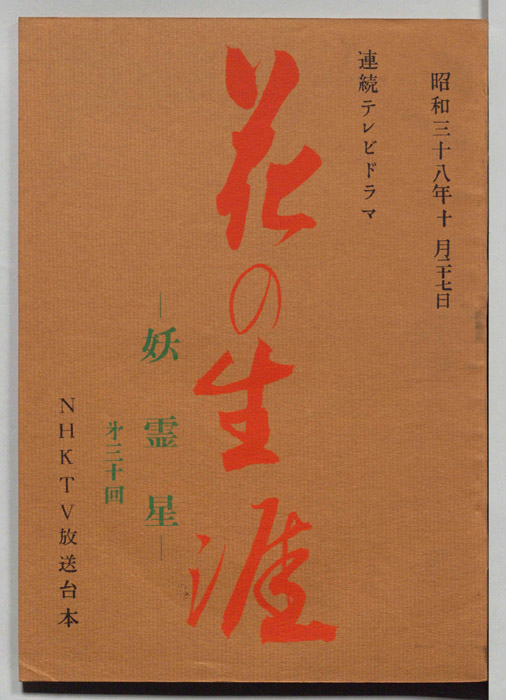 昭和三十八年十月二十七日
連続テレビドラマ
花の生涯
―妖霊星―
第三十回
NHKTV放送台本